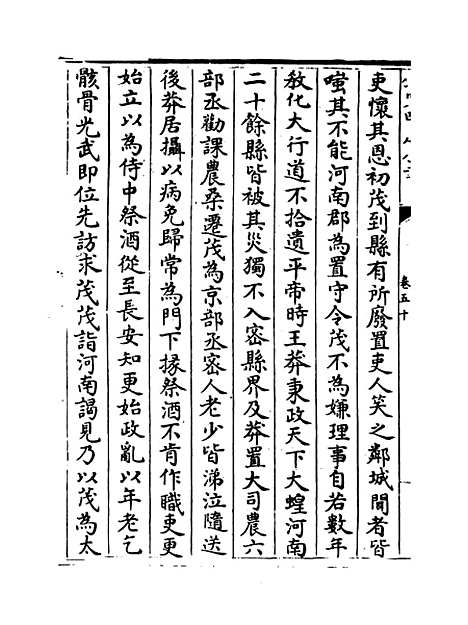 吏懷其恩初茂到縣有所廢置吏人笑之鄰城聞者皆
嗤其不能河南郡為置守令茂不為嫌理事自若數年
敎化大行道不拾遺平帝時王莽秉政天下大蝗河南
二十餘縣皆被其災獨不入密縣界及莽置大司農六
部丞勸課農桑遷茂為京部丞密人老少皆涕泣隨送
後莽居攝以病免歸常為門下掾祭酒不肯作職吏更
始立以為侍中祭酒從至長安知更始政亂以年老乞
骸骨光武即位先訪求茂茂詣河南謁見乃以茂為太
卷五十